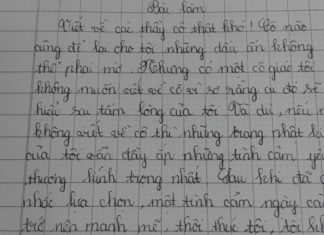 Bài làm
Viết về các thầy cô thật khó! Cô nào
cũng để lại cho tôi những dấu ấn không
thể phai mờ. Nhưng có một cô giáo tôi
không muốn viết về cô vì sợ rằng cô sẽ
hiểu sai tấm lòng của tôi. Và dù, nếu
không viết về cô thì những trang nhật kí
của tôi vẫn đầy ắp những tình cảm yêu
thương, kính trọng nhất. Sau khi đã
nhắc lựa chọn, một tình cảm ngày cà
trở nên mạnh mẽ, thôi thúc tôi, tôi